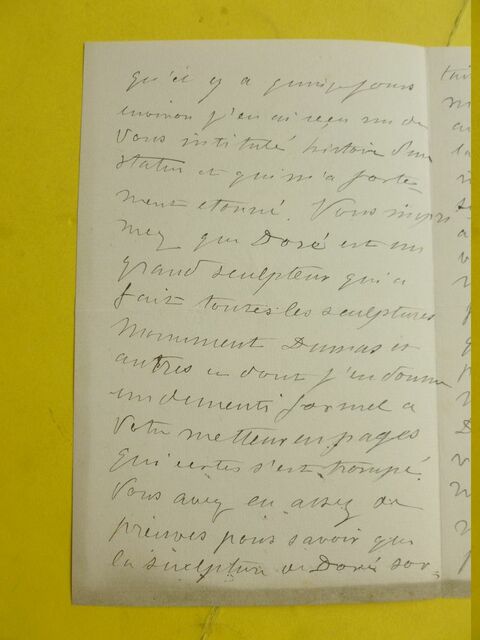 qu'il y a quinze jours
environ j'en ai reçu un de
Vous intitulé histoire d'une
statue et qui m'a forte-
ment etonné. Vous impri
mez que Doré est un
grand sculpteur qui a
fait toutes les sculptures
Monument Dumas et
autres ce dont j'en donne
un dementi formel a
Votre metteur en pages
qui certes s'est trompé.
Vous avez eu assez de
preuves pour savoir que
la sculpture de Doré sor